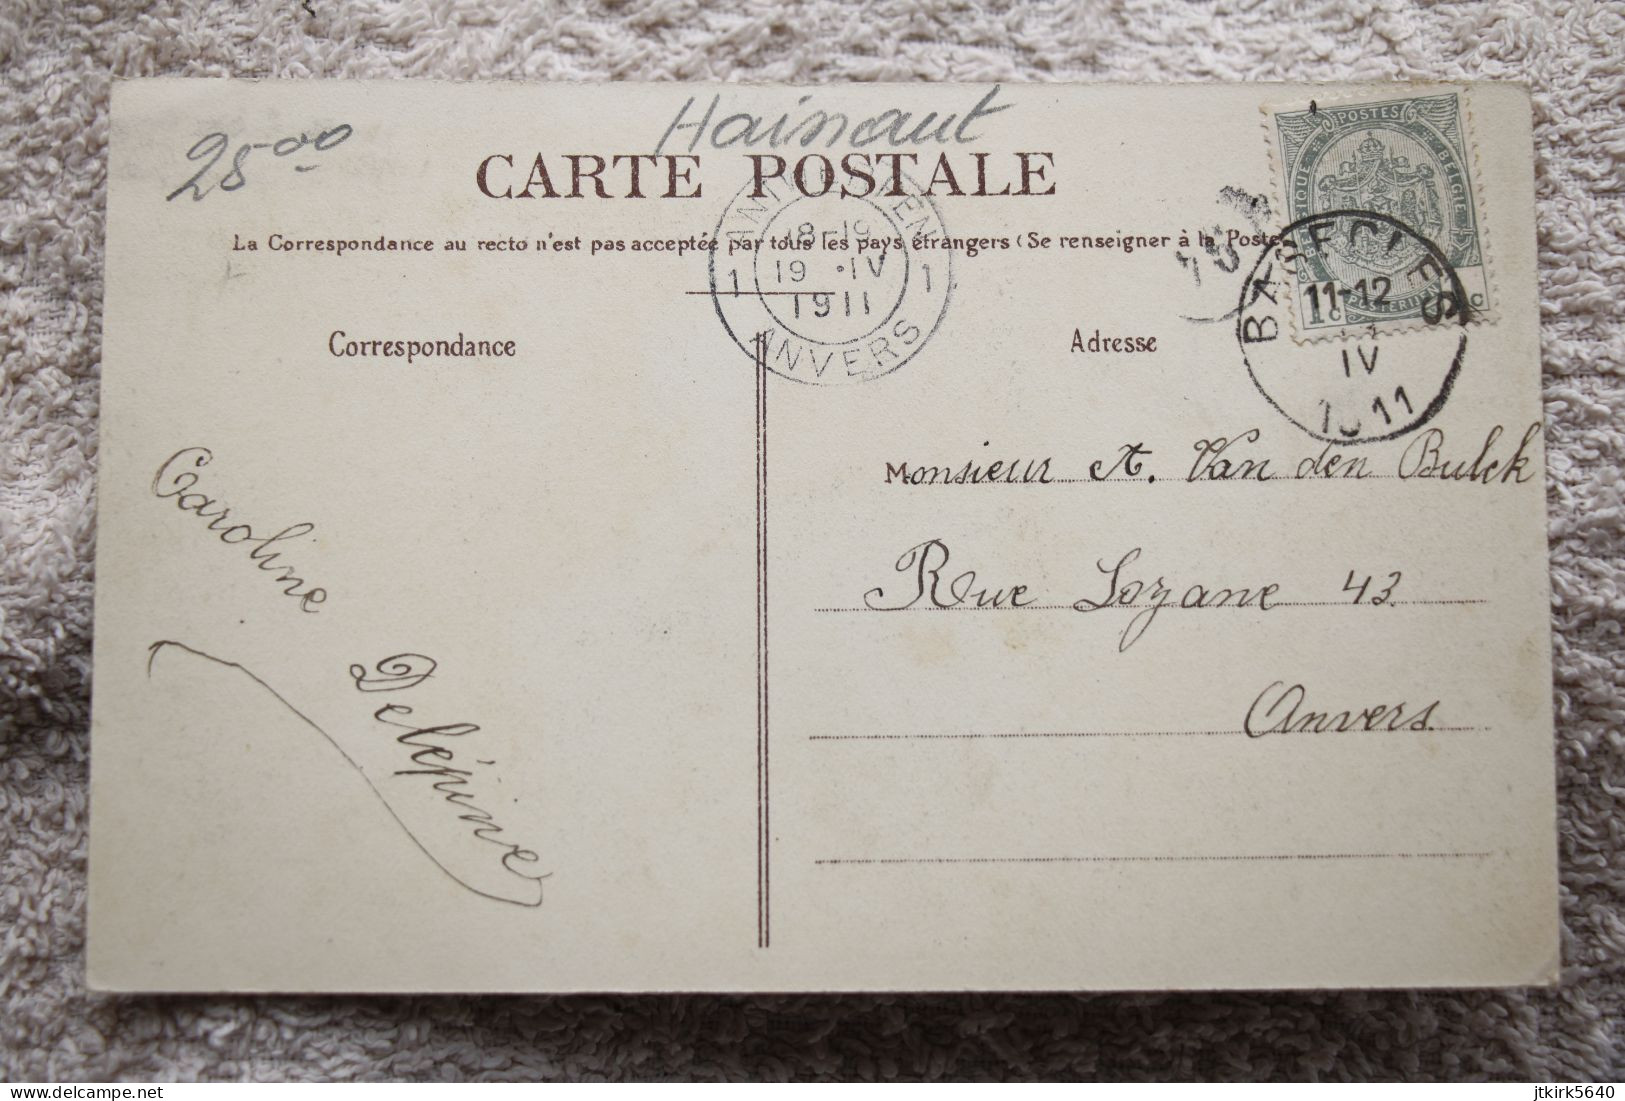 25 00
Hainaut
CARTE POSTALE
La Correspondance au recto n'est pas acceptée par tous les pays étrangers (Se renseigner à la Poste
ANTWERPEN
18-19
1 19 ·IV 1
1911
ANVERS
POSTES
BELGIQUE
BELGIE
POSTERIJEN
1c
BASECLES
11-12
IV
1911
Correspondance
Adresse
Monsieur A. Van den Bulck
Rue Lozane 43
Anvers
Caroline
Delépine
delcampe.net
jtkirk5640